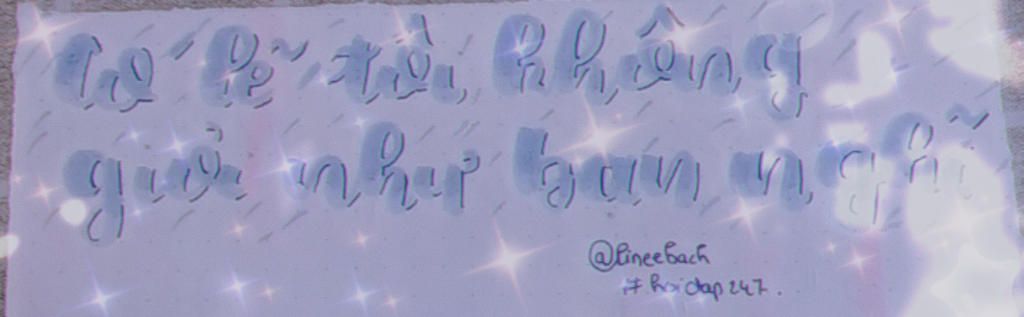 Có lẽ tôi không
giỏi như bạn nghĩ
@lineebach
# hoidap247.